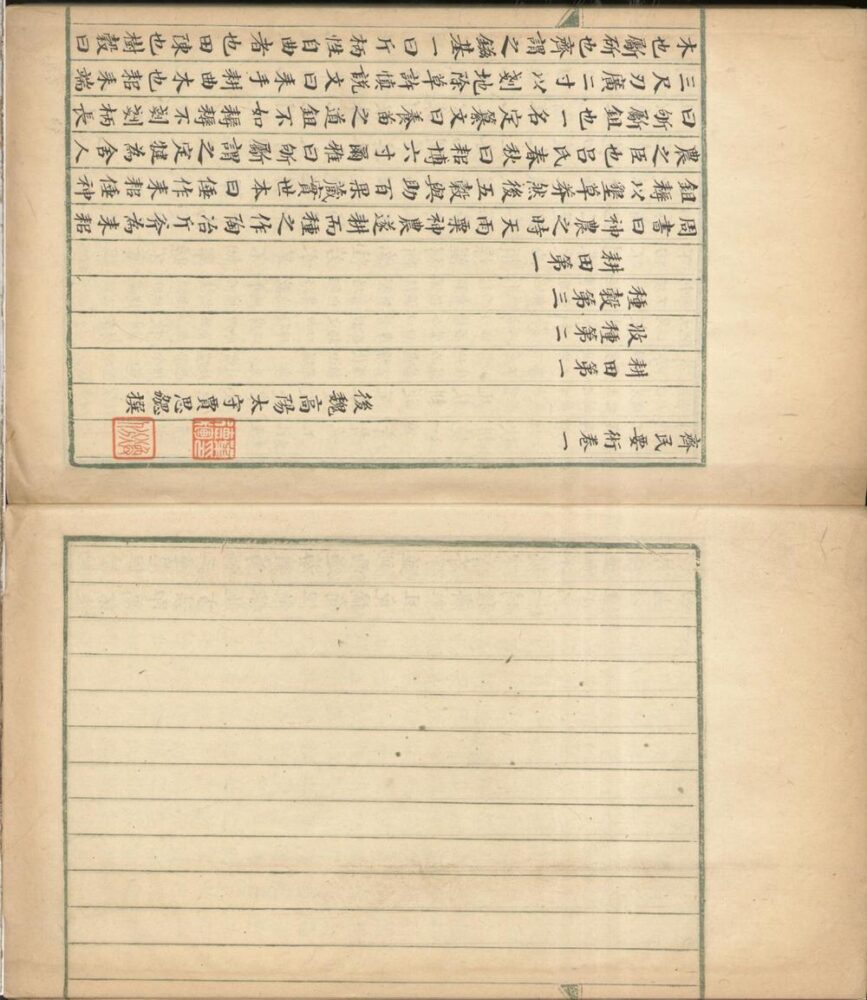 齊民要術卷一
後魏高陽太守賈思勰撰
耕田第一
收種第二
種穀第三
耕田第一
周書曰神農之時天雨粟神農遂耕而種之作陶冶斤斧為耒耜
鉏耨以墾草莽然後五穀與助百果藏實世本曰倕作耒耜倕神
農之臣也呂氏春秋曰耜博六寸爾雅曰斪斸謂之定犍為舍人
曰斪斸鉏也一名定纂文曰養苗之道鉏不如耨耨不剗剗柄長
三尺刃廣二寸以剗地除草許慎說文曰耒手耕曲木也耜耒端
木也斸斫也齊謂之鎡基一曰斤柄性自曲者也田陳也樹穀曰